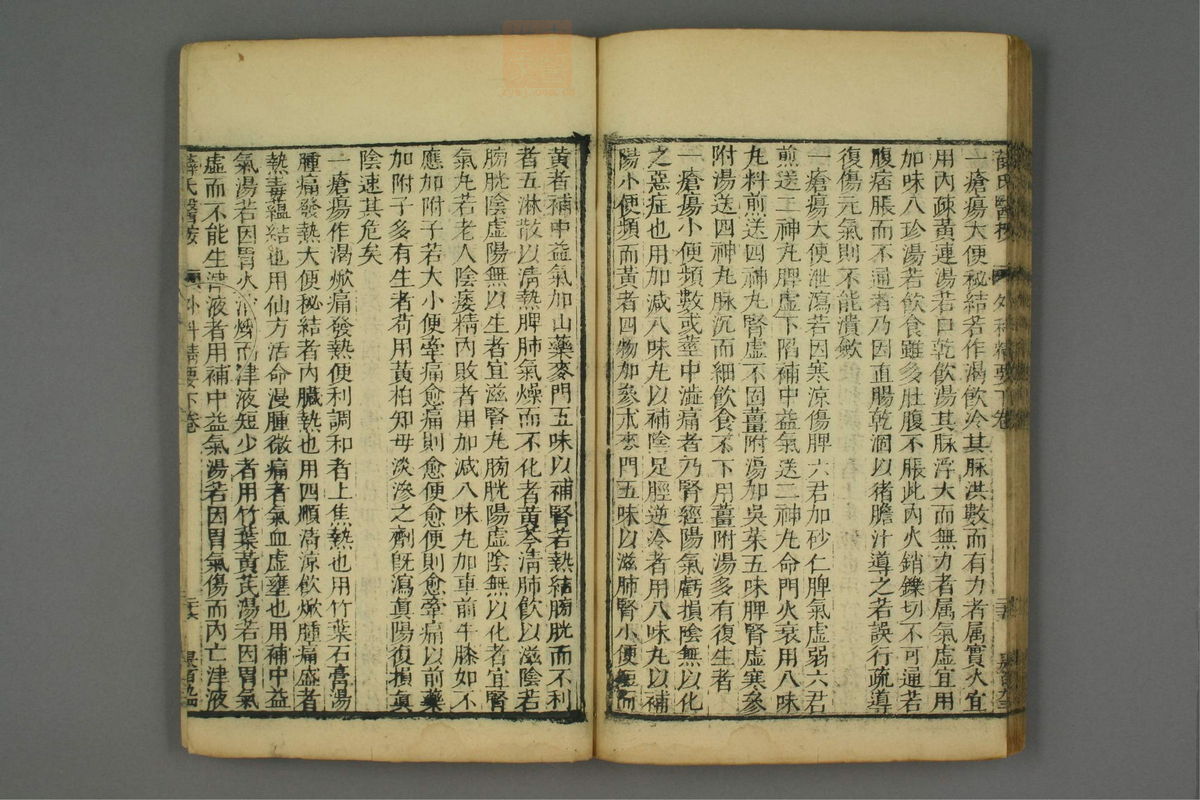 薛氏醫按 外科精要下卷
一瘡瘍大便秘結若作渴飲冷其脉洪數而有力者属實火宜
用内疎黃連湯若口乾飲湯其脉浮大而無力者属氣虚宜用
加味八珍湯若飲食雖多肚腹不脹此内火銷鑠切不可通若
腹痞脹而不通者乃因直腸乾涸以猪膽汁導之若誤行疏導
復傷元氣則不能潰斂
一瘡瘍大便泄瀉若因寒涼傷脾六君加砂仁脾氣虚弱六君
煎送二神丸脾虚下陷補中益氣送二神丸命門火衰用八味
丸料煎送四神丸腎虚不固薑附湯加吳茱五味脾腎虚寒參
附湯送四神丸脉沉而細飲食不下用薑附湯多有復生者
一瘡瘍小便頻數或莖中澁痛者乃腎經陽氣虧損陰無以化
之惡症也用加减八味丸以補陰足脛逆冷者用八味丸以補
陽小便頻而黃者四物加參朮麥門五味以滋肺腎小便短而
黃者補中益氣加山藥麥門五味以補腎若熱結膀胱而不利
者五淋散以清熱脾肺氣燥而不化者黃芩清肺飲以滋陰若
膀胱陰虚陽無以生者宜滋腎丸膀胱陽虚陰無以化者宜腎
氣丸若老人陰痿精内敗者用加减八味丸加車前牛膝如不
應加附子若大小便牽痛愈痛則愈便愈便則愈牽痛以前藥
加附子多有生者苟用黃柏知母淡滲之劑旣瀉眞陽復損眞
陰速其危矣
一瘡瘍作渴焮痛發熱便利調和者上焦熱也用竹葉石膏湯
腫痛發熱大便秘結者内臓熱也用四順清涼飲焮腫痛盛者
熱毒蘊結也用仙方活命漫腫微痛者氣血虚壅也用補中益
氣湯若因胃火消爍而津液短少者用竹葉黃芪湯若因胃氣
虛而不能生津液者用補中益氣湯若因胃氣傷而内亡津液
薛氏醫按 外科精要下卷